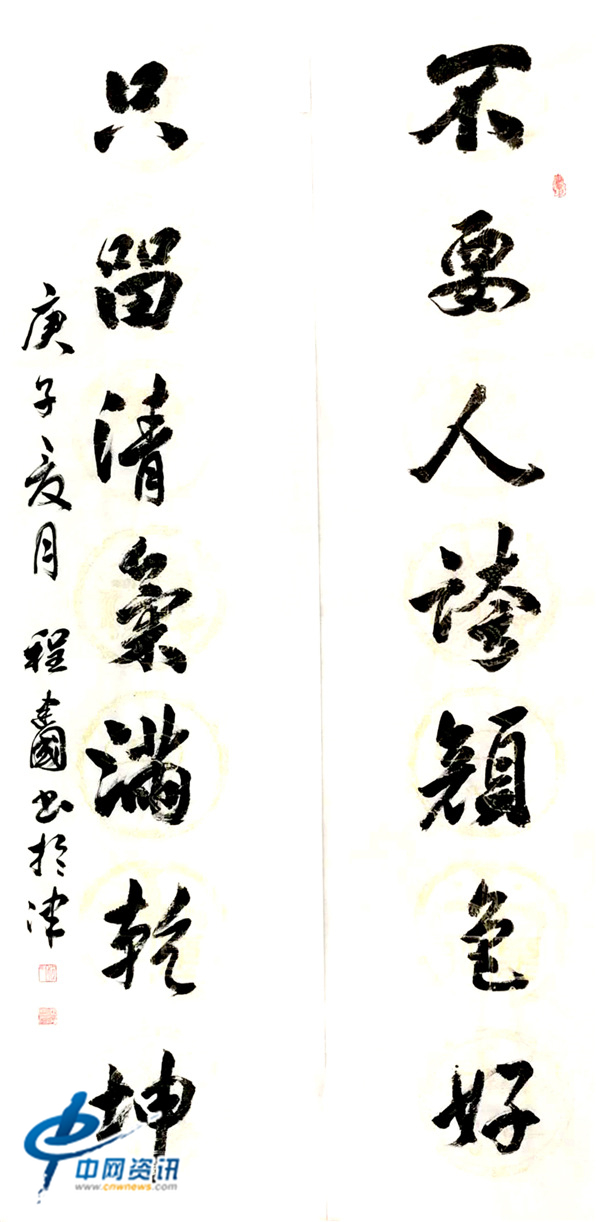 不要人誇顔色好
只留清氣滿乾坤
庚子夏月 程建國書於津
中网资讯
www.cnwnews.com